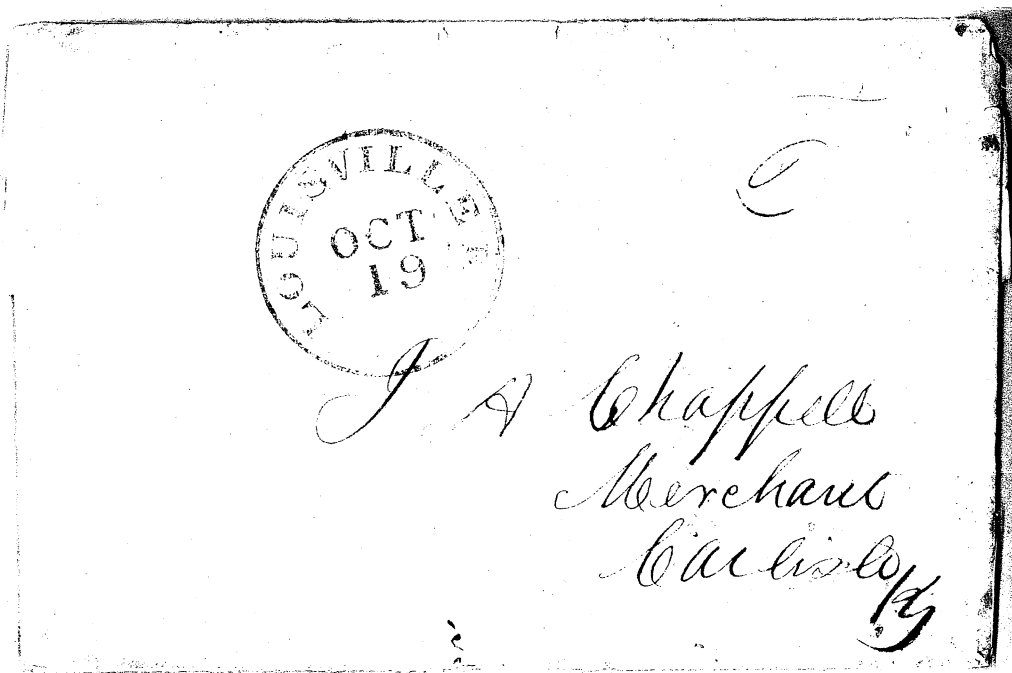 LOUISVILLE K
OCT
19
J A Chappell
Merchant
Carlisle Ky